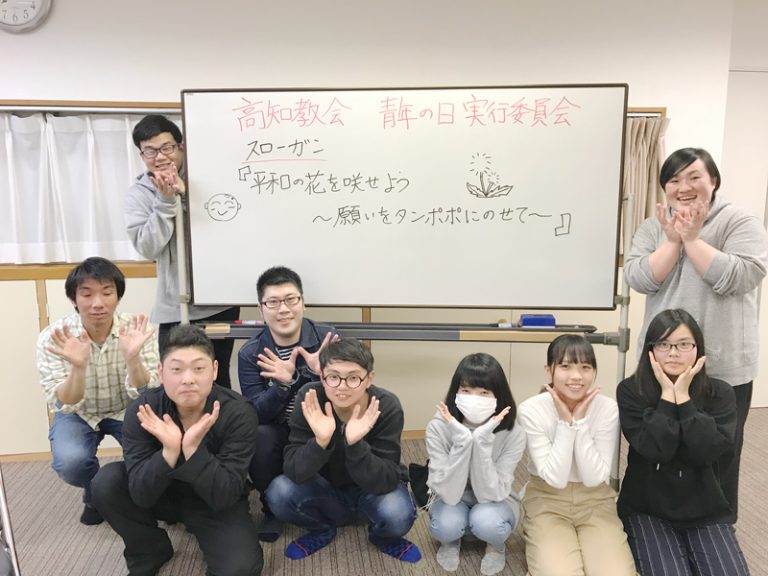 高知教会 青年の日実行委員会
スローガン
『平和の花を咲せよう
〜願いをタンポポにのせて〜』